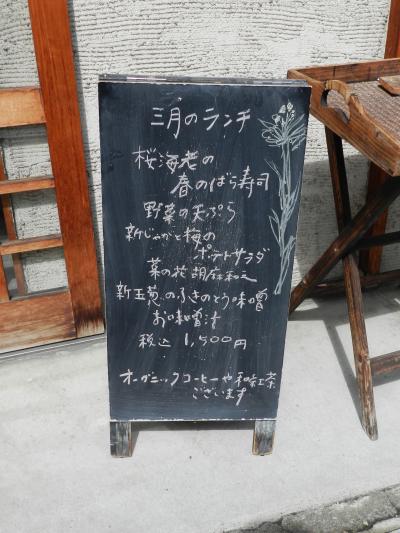 三月のランチ
桜海老の
春のばら寿司
野菜の天ぷら
新じゃがと梅の
ポテトサラダ
菜の花胡麻和え
新玉葱のふきのとう味噌
お味噌汁
税込 1,500円
オーガニックコーヒーや和紅茶
ございます